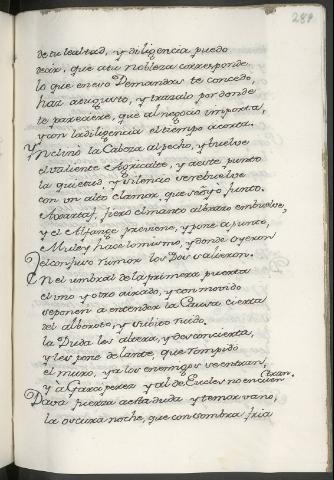 289
de tu lealtad, y diligencia puedo
decir, que a tu nobleza corresponde,
lo que en esto Demandras te concedo,
haz a tu gusto, y trazalo por donde
te pareciere, que al negocio importa,
y con la diligencia el tiempo acorta.
Ynclinó la Cabeza al pecho, y buelve
el valiente Agricalte, y a este punto
la quietud y silencio se rebuelve
con un alto clamor, que sonó junto.
fiero el manto al brazo embuelve,
y el Alfange previene, y pone a punto,
Muley hace lo mismo, y donde oyeron
el confuso rumor los Dos salieron.
En el umbral de la primera puerta
el uno y otro airado, y conmovido
se ponen a entender la Causa cierta
del alboroto, y subito ruido.
la Duda les altera, y desconcierta,
y les pone delante, que rompido
el muro, ya los enemigos se entran,
y a Garci perez y al de Eucles no encuen
tran.
Dava fuerza a esta duda y temor vano,
la oscura noche, que con sombra fria